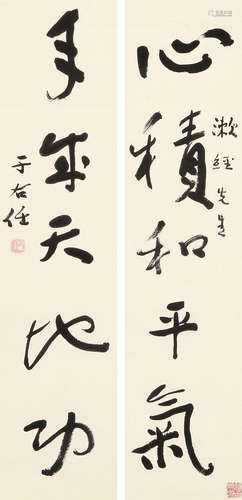 心積和平氣
漱經先生
手成天地功
于右任